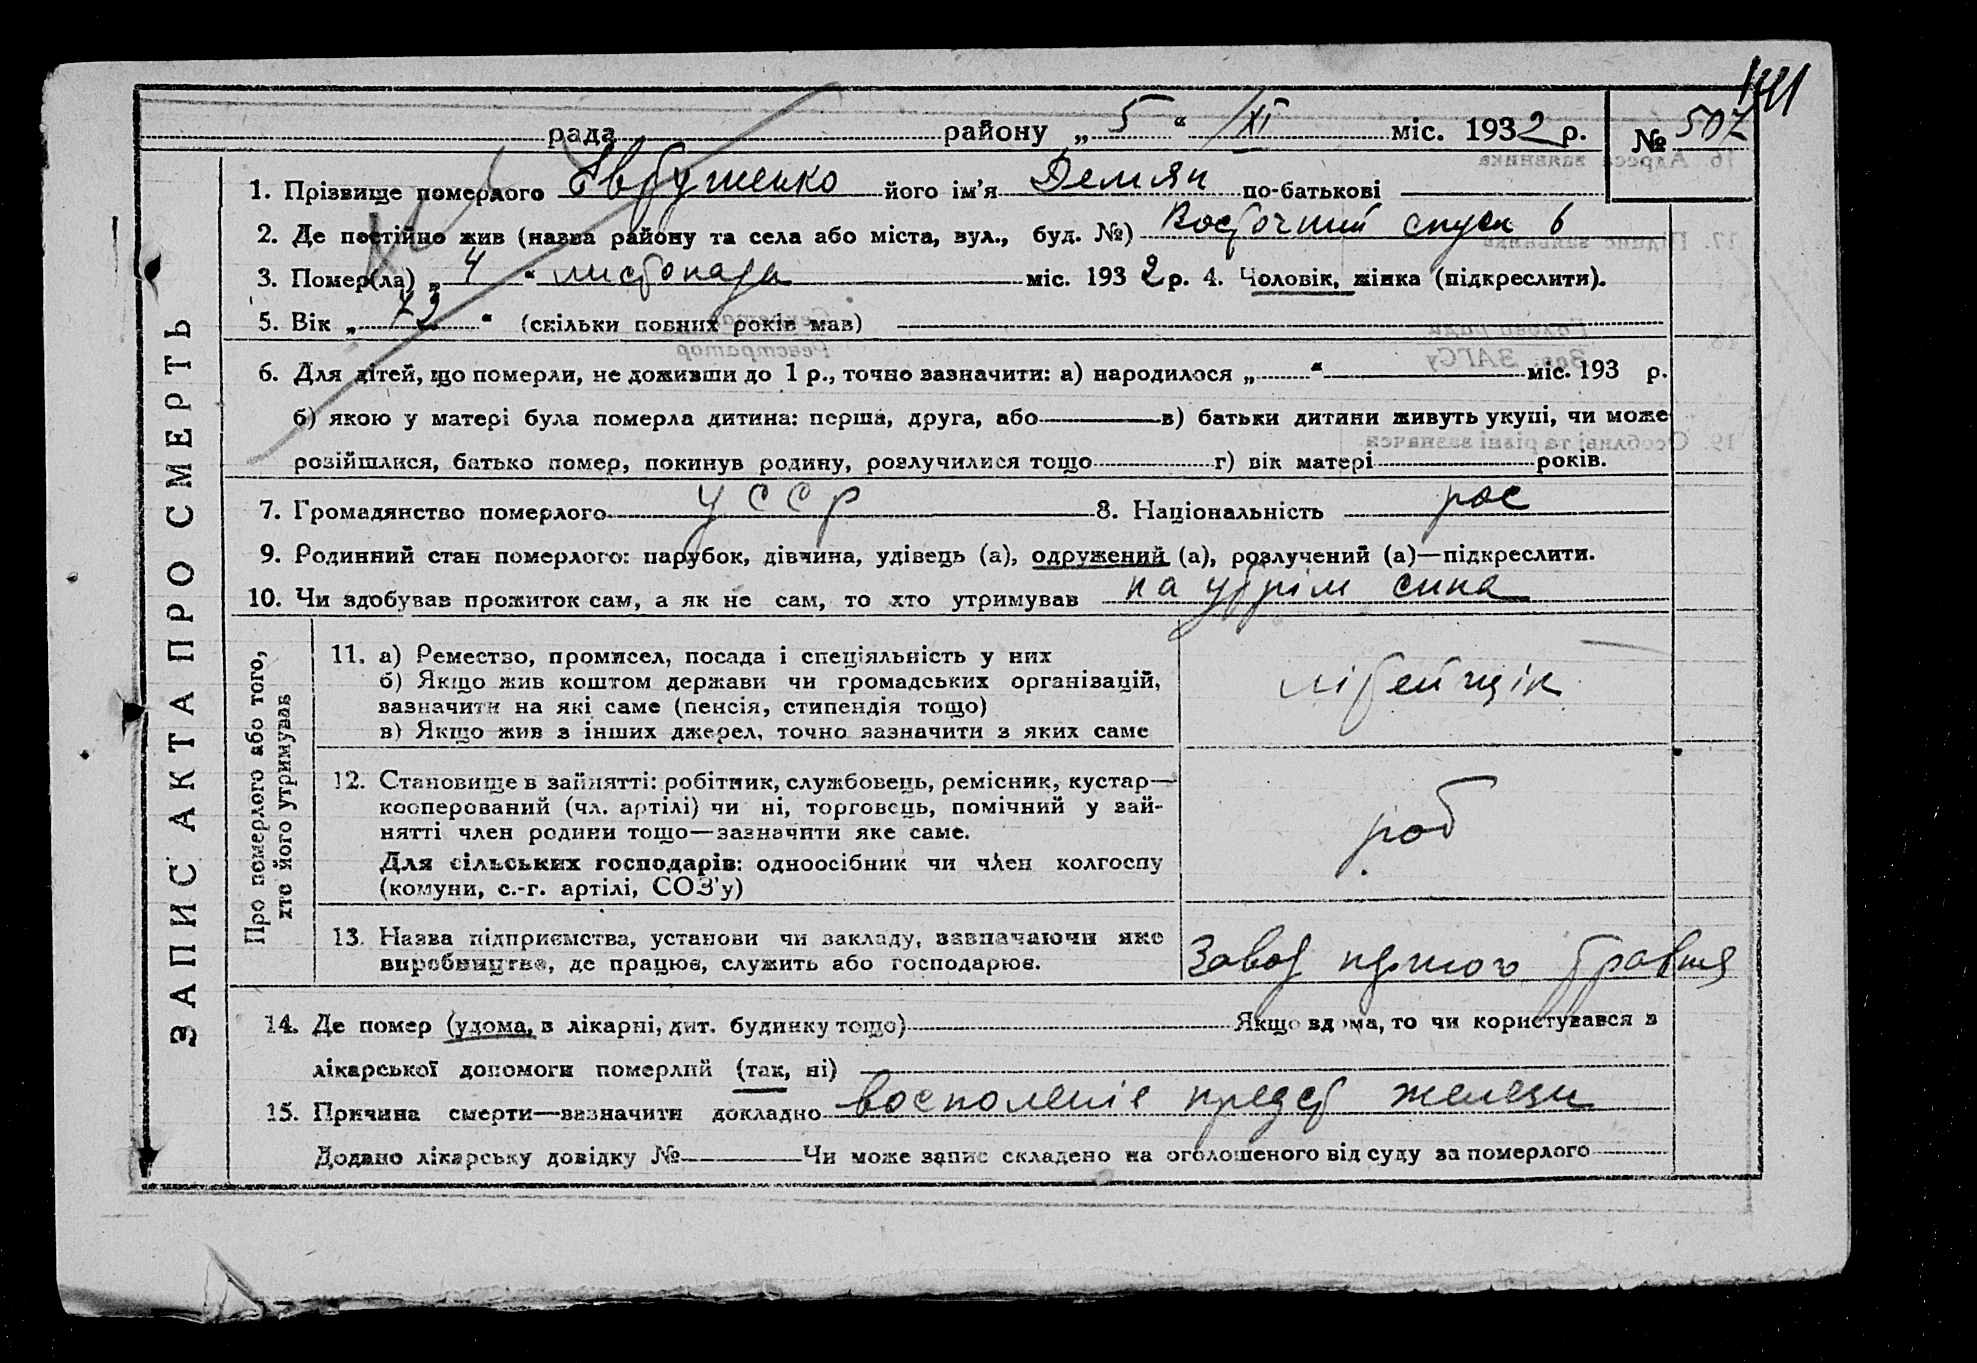 141
рада района „ 5 “ XI міс. 1932 р. № 507
1. Прізвище померлого Явтушенко його ім'я Демян по-батькові
2. Де постійно жив (назва району та села або міста, вул., буд. №) Восточний спуск 6
3. Помер(ла) „ 4 “ листопада міс. 1932 р. 4. Чоловік, жінка (підкреслити).
5. Вік „ 73 “ (скільки повних років мав)
6. Для дітей, що померли, не доживши до 1 р., точно зазначити: а) народилося „ “ міс. 193 р.
б) якою у матері була померла дитина: перша, друга, або в) батьки дитини живуть укупі, чи може
розійшлися, батько помер, покинув родину, розлучилися тощо г) вік матері років.
7. Громадянство померлого УССР 8. Національність рос
9. Родинний стан померлого: парубок, дівчина, удівець (а), одружений (а), розлучений (а)—підкреслити.
10. Чи здобував прожиток сам, а як не сам, то хто утримував на утрім сина
ЗАПИС АКТА ПРО СМЕРТЬ
Про померлого або того,
хто його утримував
11. а) Ремество, промисел, посада і спеціяльність у них
б) Якщо жив коштом держави чи громадських організацій,
зазначити на які саме (пенсія, стипендія тощо)
в) Якщо жив з інших джерел, точно зазначити з яких саме
лібейщік
12. Становище в зайнятті: робітник, службовець, ремісник, кустар—
кооперований (чл. артілі) чи ні, торговець, помічний у зай-
нятті член родини тощо—зазначити яке саме.
Для сільських господарів: одноосібник чи член колгоспу
(комуни, с.-г. артілі, СОЗ'у)
роб
13. Назва підприємства, установи чи закладу, зазначаючи яке
виробництво, де працює, служить або господарює.
Завод першого травня
14. Де помер (удома, в лікарні, дит. будинку тощо) Якщо вдома, то чи користувався з
лікарської допомоги померлий (так, ні)
15. Причина смерти—зазначити докладно восполеніе предст железы
Додано лікарську довідку № Чи може запис складено на оголошеного від суду за померлого